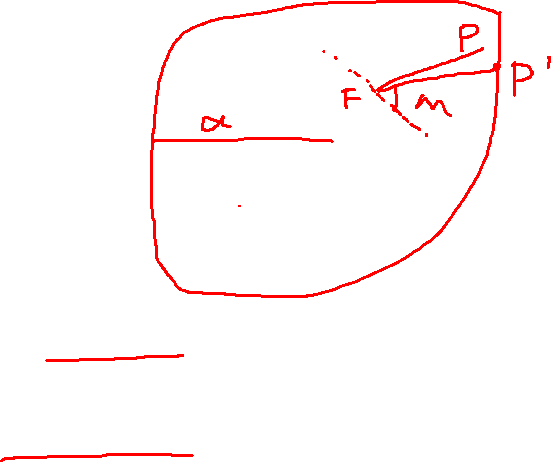 P
P'
F
m
α